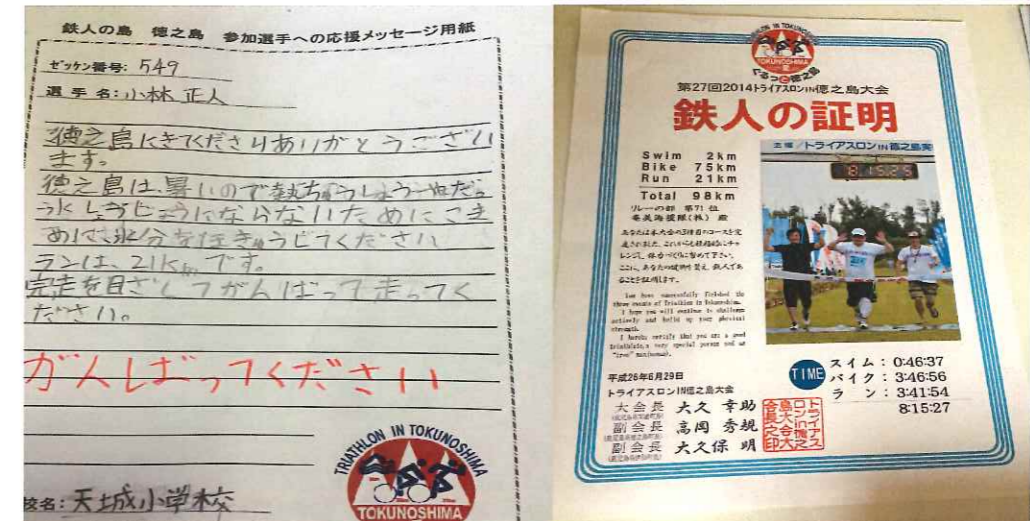 鉄人の島 徳之島 参加選手への応援メッセージ用紙
ゼッケン番号: 549
選手名:小林 正人
徳之島にきてくださりありがとうござい
ます。
徳之島は、暑いので熱ちゅうしょう
にならないためにこま
めに水分を
ください
ランは、21kmです。
完走を目ざしてがんばって走ってく
ださい。
がんばってください
校名:天城小学校
TRIATHLON IN TOKUNOSHIMA
TOKUNOSHIMA
IN TOKUNOSHIMA
TOKUNOSHIMA
ぐるっと徳之島
第27回2014トライアスロンIN徳之島大会
鉄人の証明
Swim 2km
Bike 75km
Run 21km
Total 98km
リレーの部 第71位
奄美海援隊(株) 殿
あなたは本大会の3種目のコースを完
走されました。これからも積極的にチャ
レンジし、体力づくりに努めて下さい。
ここに、あなたの健闘を讃え、鉄人であ
ることを証明します。
You have successfully finished the
three events of Triathlon in Tokunoshima.
I hope you will continue to challenge
actively and build up your physical
strength.
I hereby certify that you are a good
triathlete, a very special person and an
"iron" man(woman).
平成26年6月29日
トライアスロンIN徳之島大会
大会長 大久 幸助
副会長 高岡 秀規
副会長 大久保 明
トライアスロンin徳之島大会大会長之印
主催/トライアスロンIN徳之島実
8:15:25
TIME
スイム:0:46:37
バイク:3:46:56
ラン:3:41:54
8:15:27